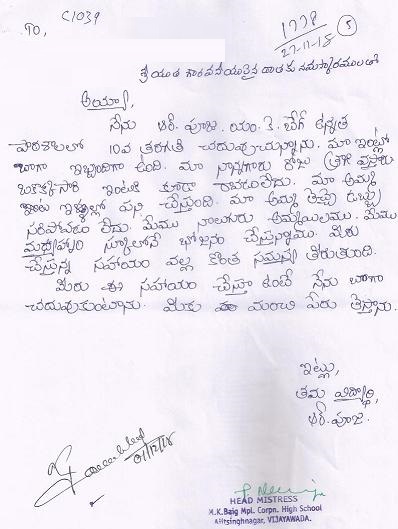 TO,
C1039
1778
27-11-18
5
శ్రీయుత గౌరవనీయులైన దాతకు నమస్కారములతో
అయ్యా,
నేను ఆర్. పూజ. యం. కె. బేగ్ ఉన్నత
పాఠశాలలో 10వ తరగతి చదువుచున్నాను. మా ఇంట్లో
బాగా ఇబ్బందిగా ఉంది. మా నాన్నగారు రోజు త్రాగి వస్తారు
ఒకొక్కసారి ఇంటికి కూడా రావడంలేదు. మా అమ్మ
ఇంట ఇళ్ళల్లో పని చేస్తుంది. మా అమ్మ తెచ్చే డబ్బు
సరిపోవడం లేదు. మేము నాలుగురు అమ్మాయిలము. మేము
మధ్యాహ్నం స్కూలులోనే భోజనం చేస్తున్నాము. మీరు
చేస్తున్న సహాయం వల్ల కొంత సమస్య తీరుతుంది.
మీరు ఈ సహాయం చేస్తూ ఉంటే నేను బాగా
చదువుకుంటాను. మీకు మంచి పేరు తెస్తాను.
ఇట్లు,
తమ విద్యార్థి,
ఆర్. పూజ.
01/12/18
HEAD MISTRESS
M.K.Baig Mpl. Corpn. High School
Ajitsinghnagar, VIJAYAWADA.